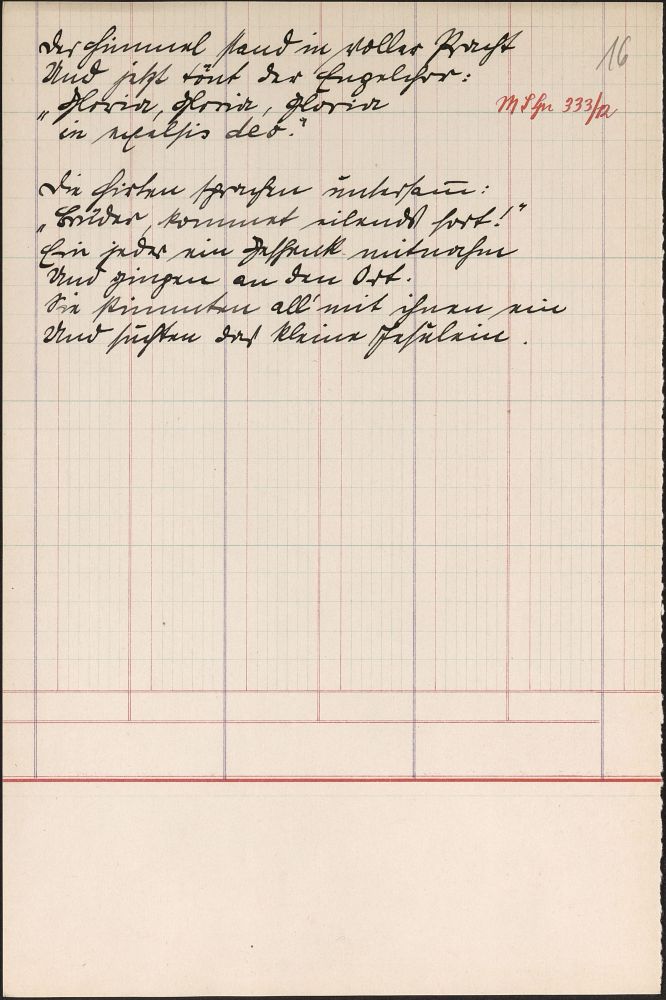 Der Himmel stand in voller Pracht
16
Und jetzt tönt der Engelchor:
„Gloria, Gloria, Gloria
333/12
in excelsis deo."
Die Hirten sprachen untersam̅:
„Brüder, kommet eilends fort!"
Ein jeder ein Geschenk mitnahm
Und gingen an den Ort.
Sie stimmten all' mit ihnen ein
Und suchten das kleine Jesulein.